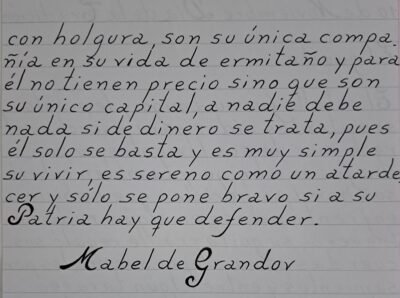 con holgura, son su única compa.
ñía en su vida de ermitaño y para
él no tienen precio sino que son
su único capital, a nadie debe
nada si de dinero se trata, pues
él solo se basta y es muy simple
su vivir, es sereno como un atarde
cer y sólo se pone bravo si a su
Patria hay que defender.
Mabel de Grandov